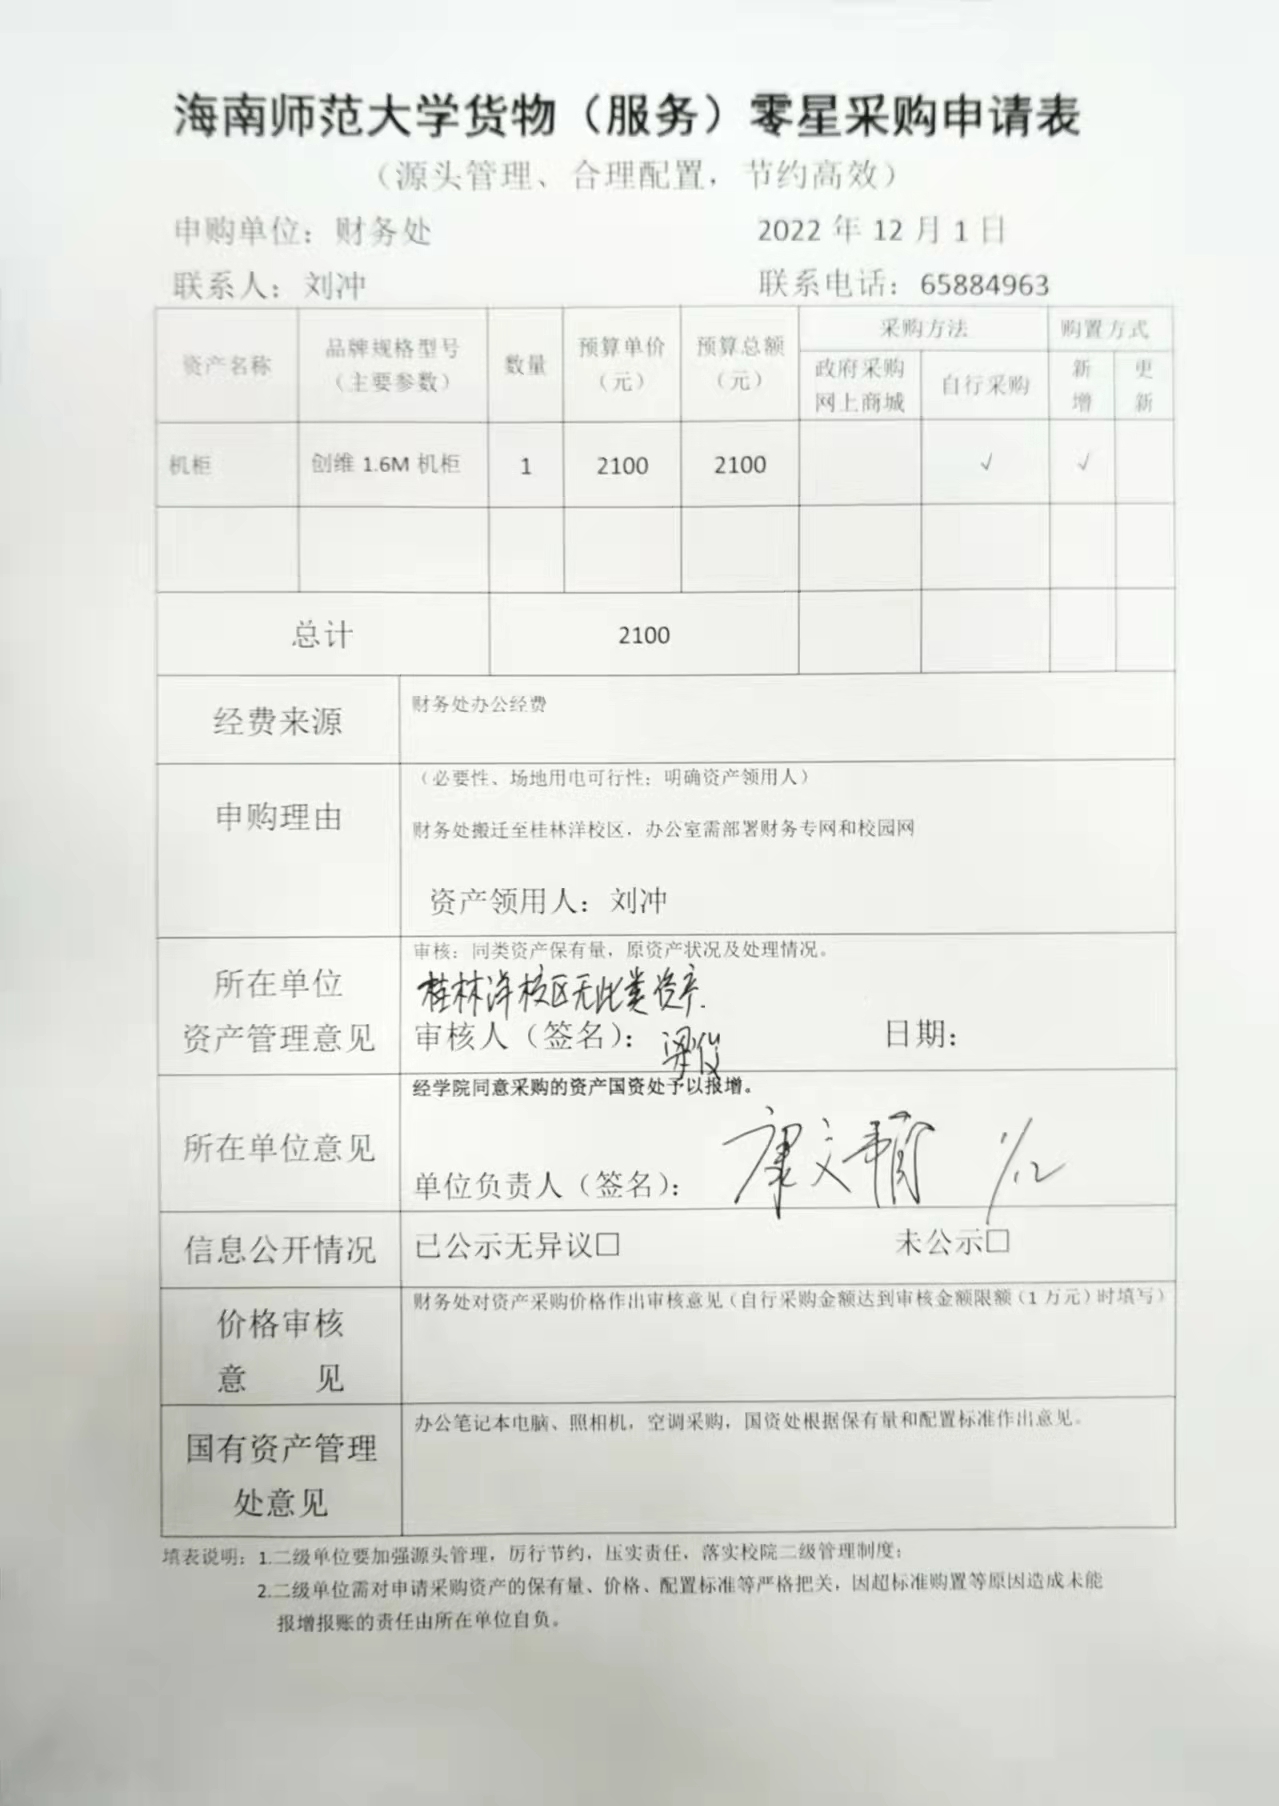 海南师范大学货物（服务）零星采购申请表
（源头管理、合理配置，节约高效）
申购单位：财务处 2022 年 12 月 1 日
联系人：刘冲 联系电话：65884963
资产名称 品牌规格型号（主要参数） 数量 预算单价（元） 预算总额（元） 采购方法 购置方式
政府采购网上商城 自行采购 新增 更新
机柜 创维 1.6M 机柜 1 2100 2100 √ √
总计 2100
经费来源 财务处办公经费
申购理由 （必要性、场地用电可行性；明确资产领用人）
财务处搬迁至桂林洋校区，办公室需部署财务专网和校园网
资产领用人：刘冲
所在单位资产管理意见 审核：同类资产保有量，原资产状况及处理情况。
桂林洋校区无此类资产.
审核人（签名）：梁俊 日期：
所在单位意见 经学院同意采购的资产国资处予以报增。
单位负责人（签名）： 1/12
信息公开情况 已公示无异议□ 未公示□
价格审核意 见 财务处对资产采购价格作出审核意见（自行采购金额达到审核金额限额（1 万元）时填写）
国有资产管理处意见 办公笔记本电脑、照相机，空调采购，国资处根据保有量和配置标准作出意见。
填表说明：1.二级单位要加强源头管理，厉行节约，压实责任，落实校院二级管理制度；
2.二级单位需对申请采购资产的保有量、价格、配置标准等严格把关，因超标准购置等原因造成未能
报增报账的责任由所在单位自负。